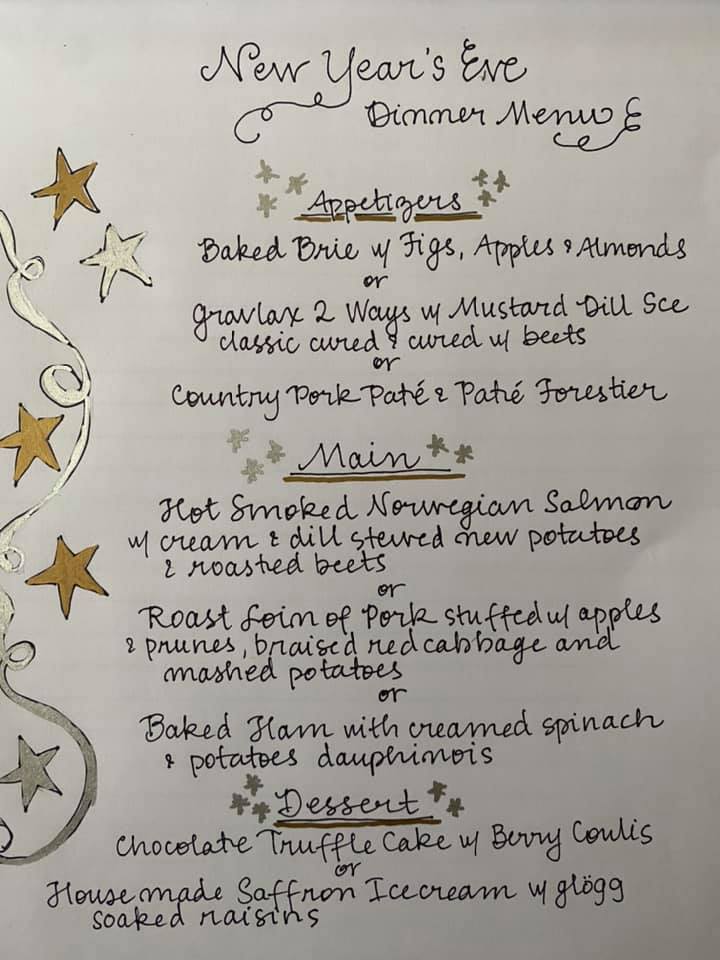 New Year's Eve
Dinner Menu
Appetizers
Baked Brie w/ Figs, Apples & Almonds
or
Gravlax 2 Ways w/ Mustard Dill Sce
classic cured & cured w/ beets
or
Country Pork Paté & Paté Forestier
Main
Hot Smoked Norwegian Salmon
w/ cream & dill stewed new potatoes
& roasted beets
or
Roast Loin of Pork stuffed w/ apples
& prunes, braised red cabbage and
mashed potatoes
or
Baked Ham with creamed spinach
& potatoes dauphinois
Dessert
Chocolate Truffle Cake w/ Berry Coulis
or
House made Saffron Icecream w/ glögg
soaked raisins